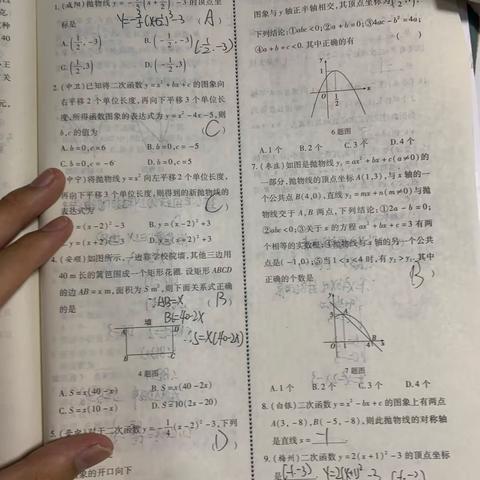 1.(咸阳)抛物线
的顶点坐
标是 y=½(x+½)²-3 A
A.(½,-3) B.(-½,-3) (½,-3)
C.(½,3) D.(-½,3)
2.(中卫)已知将二次函数y=x²+bx+c的图象向
右平移2个单位长度,再向下平移3个单位长
度,所得函数图象的表达式为y=x²-4x-5,则
b,c的值为 (C)
A.b=0,c=6 B.b=0,c=-5
C.b=0,c=-6 D.b=0,c=5
中宁)将抛物线y=x²向左平移2个单位长度,
再向下平移3个单位长度,则得到的新抛物线的
表达式为 C
y=(x-2)²-3 B.y=(x-2)²+3
y=(x+2)²-3 D.y=(x+2)²+3
4.(安顺)如图所示,一边靠学校院墙,其他三边用
40 m长的篱笆围成一个矩形花圃.设矩形ABCD
的边AB=x m,面积为S m²,则下面关系式正确
的是 ∵AB=x (B)
BC=40-2x
墙
A D
∴S=x(40-2x)
B C
4题图
A.S=x(40-x) B.S=x(40-2x)
C.S=x(10-x) D.S=10(2x-20)
对于二次函数y=-¼(x-2)²-3,下列
D
象的开口向下
图象与y轴正半轴相交,其顶点坐标为
下列结论:①abc<0;②a+b=0;③4ac-b²=4a;
④a+b+c<0.其中正确的有
y
1
½
x
6题图
A.1个 B.2个 C.3个 D.4个
7.
如图是抛物线y₁=ax²+bx+c(a≠0)的
一部分,抛物线的顶点坐标A(1,3),与x轴的一
个公共点B(4,0),直线y₂=mx+n(m≠0)与抛
物线交于A,B两点,下列结论:①2a-b=0;
②abc<0;③关于x的方程ax²+bx+c=3有两
个相等的实数根;④抛物线与x轴的另一个公共
点是(-1,0);⑤当1<x<4时,有y₂>y₁.其中
正确的个数是 B
y
3
A
O 1 4 B x
7题图
A.1个 B.2个 C.3个 D.4个
8.(白银)二次函数y=x²-bx+c的图象上有两点
A(3,-8),B(-5,-8),则此抛物线的对称轴
是直线x= -1
9.(梅州)二次函数y=2(x+1)²-3的顶点坐标
是 (-1,-3)